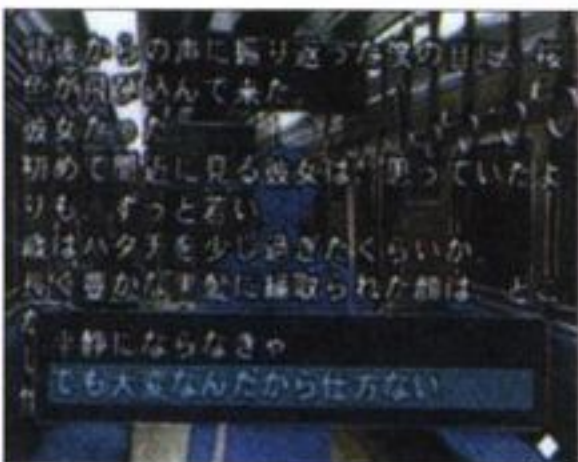 背後からの声に振り返った僕の目に、桜
色が飛び込んで来た
彼女だった
初めて間近に見る彼女は、思っていたよ
りも、ずっと若い
歳はハタチを少し過ぎたくらいか
長く豊かな黒髪に縁取られた顔は、どこ
冷静にならなきゃ
でも大変なんだから仕方ない